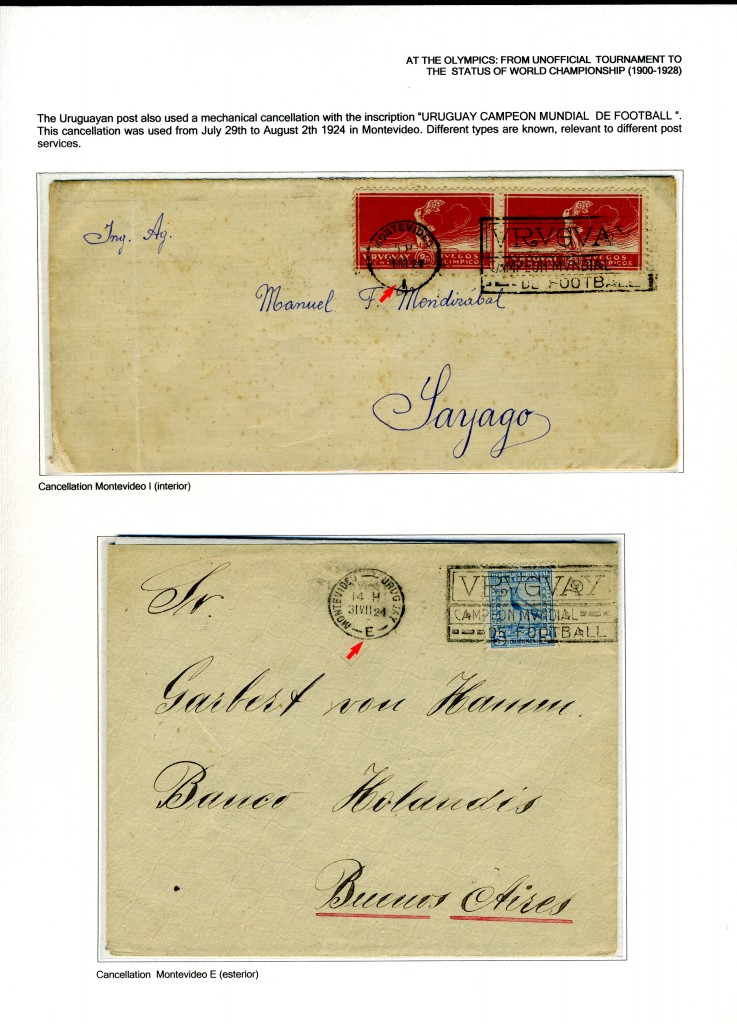 AT THE OLYMPICS: FROM UNOFFICIAL TOURNAMENT TO
THE STATUS OF WORLD CHAMPIONSHIP (1900-1928)
The Uruguayan post also used a mechanical cancellation with the inscription “URUGUAY CAMPEON MUNDIAL DE FOOTBALL “.
This cancellation was used from July 29th to August 2th 1924 in Montevideo. Different types are known, relevant to different post
services.
Ing. Ag.
MONTEVIDEO
VRVGVAY
CAMPEON MVNDIAL
DE FOOTBALL
VRVGVAY
Manuel F. Mendizábal
Sayago
Cancellation Montevideo I (interior)
MONTEVIDEO URUGUAY
14 H
31 VII 24
E
VRVGVAY
CAMPEON MVNDIAL
DE FOOTBALL
Sr.
Garbert von Hamm.
Banco Holandis
Buenos Aires
Cancellation Montevideo E (esterior)